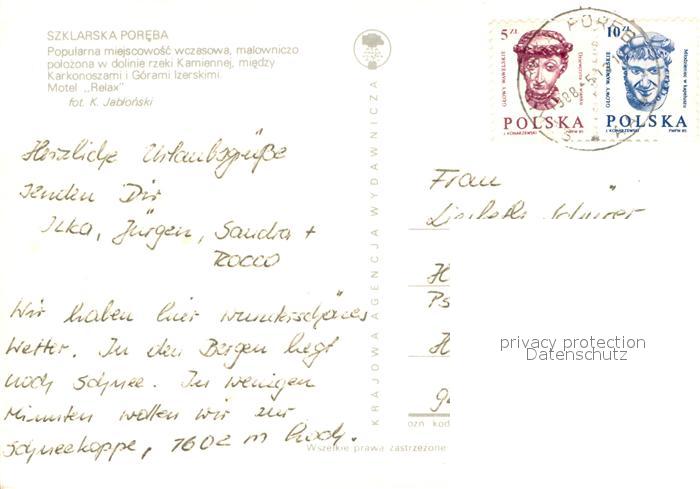 SZKLARSKA PORĘBA
Popularna miejscowość wczasowa, malowniczo
położona w dolinie rzeki Kamiennej, między
Karkonoszami i Górami Izerskimi.
Motel „Relax"
fot. K. Jabłoński
Herzliche Urlaubsgrüße
senden Dir
Ilka, Jürgen, Sandra +
ROCCO
Wir haben hier wunderschönes
Wetter. In den Bergen liegt
noch Schnee. In wenigen
Minuten wollen wir zur
Schneekoppe, 1602 m hoch.
KRAJOWA AGENCJA WYDAWNICZA
5 ZŁ
GŁOWY WAWELSKIE
POLSKA
J. KONARZEWSKI PWPW 85
10 ZŁ
GŁOWY WAWELSKIE
Młodzieniec w kapeluszu
POLSKA
J. KONARZEWSKI PWPW 85
PORĘB
Frau
H
Ps
H
94
privacy protection
Datenschutz
ozn kod
Wszelkie prawa zastrzeżone